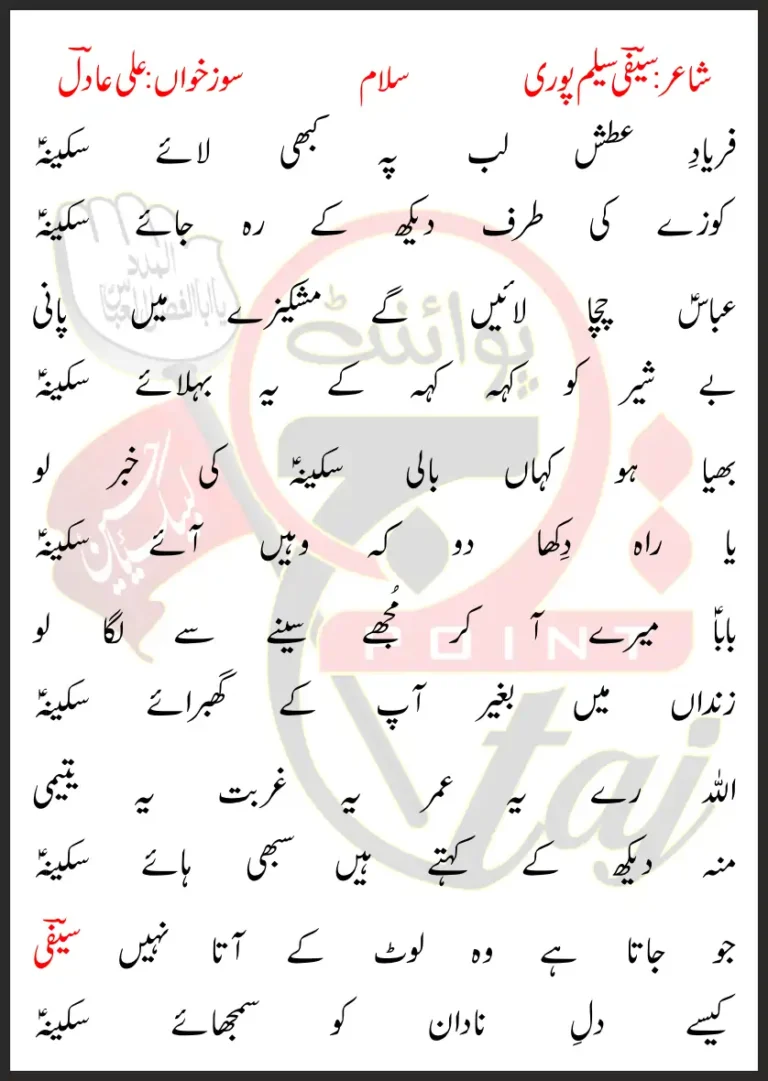 شاعر: سیفیؔ سلیم پوری سلام سوز خواں: علی عادلؔ
فریادِ عطش لب پہ کبھی لائے سکینہؑ
کوزے کی طرف دیکھ کے رہ جائے سکینہؑ
عباسؑ چچا لائیں گے مشکیزے میں پانی
بے شیر کو کہہ کہہ کے یہ بہلائے سکینہؑ
بھیا ہو کہاں بالی سکینہؑ کی خبر لو
یا راہ دِکھا دو کہ وہیں آئے سکینہؑ
باباؑ میرے آ کر مُجھے سینے سے لگا لو
زنداں میں بغیر آپ کے گھبرائے سکینہؑ
اللہ رے یہ عمر یہ غربت یہ یتیمی
منہ دیکھ کے کہتے ہیں سبھی ہائے سکینہؑ
جو جاتا ہے وہ لوٹ کے آتا نہیں سیفیؔ
کیسے دلِ نادان کو سمجھائے سکینہؑ
المدد
یا ابا الفضل العباسؑ
لبیک یا حسین
پوائنٹ
تاج
POINT
taj